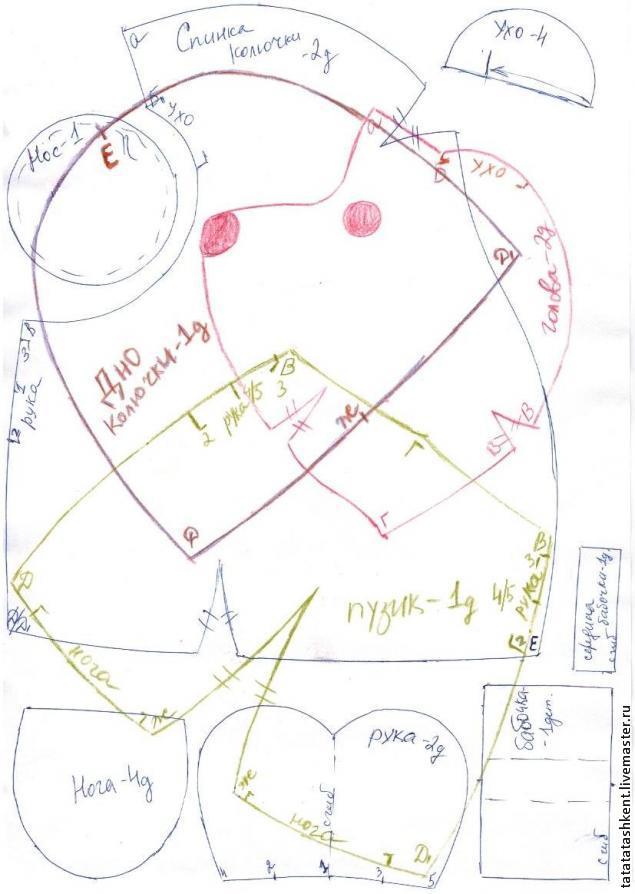 а
Спинка
колючки
-2д
ухо-4
Б
ухо
г
Нос-1
Е
а
Б
ухо
г
Д1
голова-2д
Дно
колючки-1д
рука
2
2
рука
4/5
3
В
ж
Г
В
В
Г
Ф
Д
Г
нога
ж
пузик-1д
В
3
рука
4/5
2
Е
середина
бабочка-1д
сгиб
бабочка
-1дет.
сгиб
Нога-4д
рука-2д
сгиб
ж
Г
нога
Г
Д1
2
1
3
5
ratatatashkent.livemaster.ru